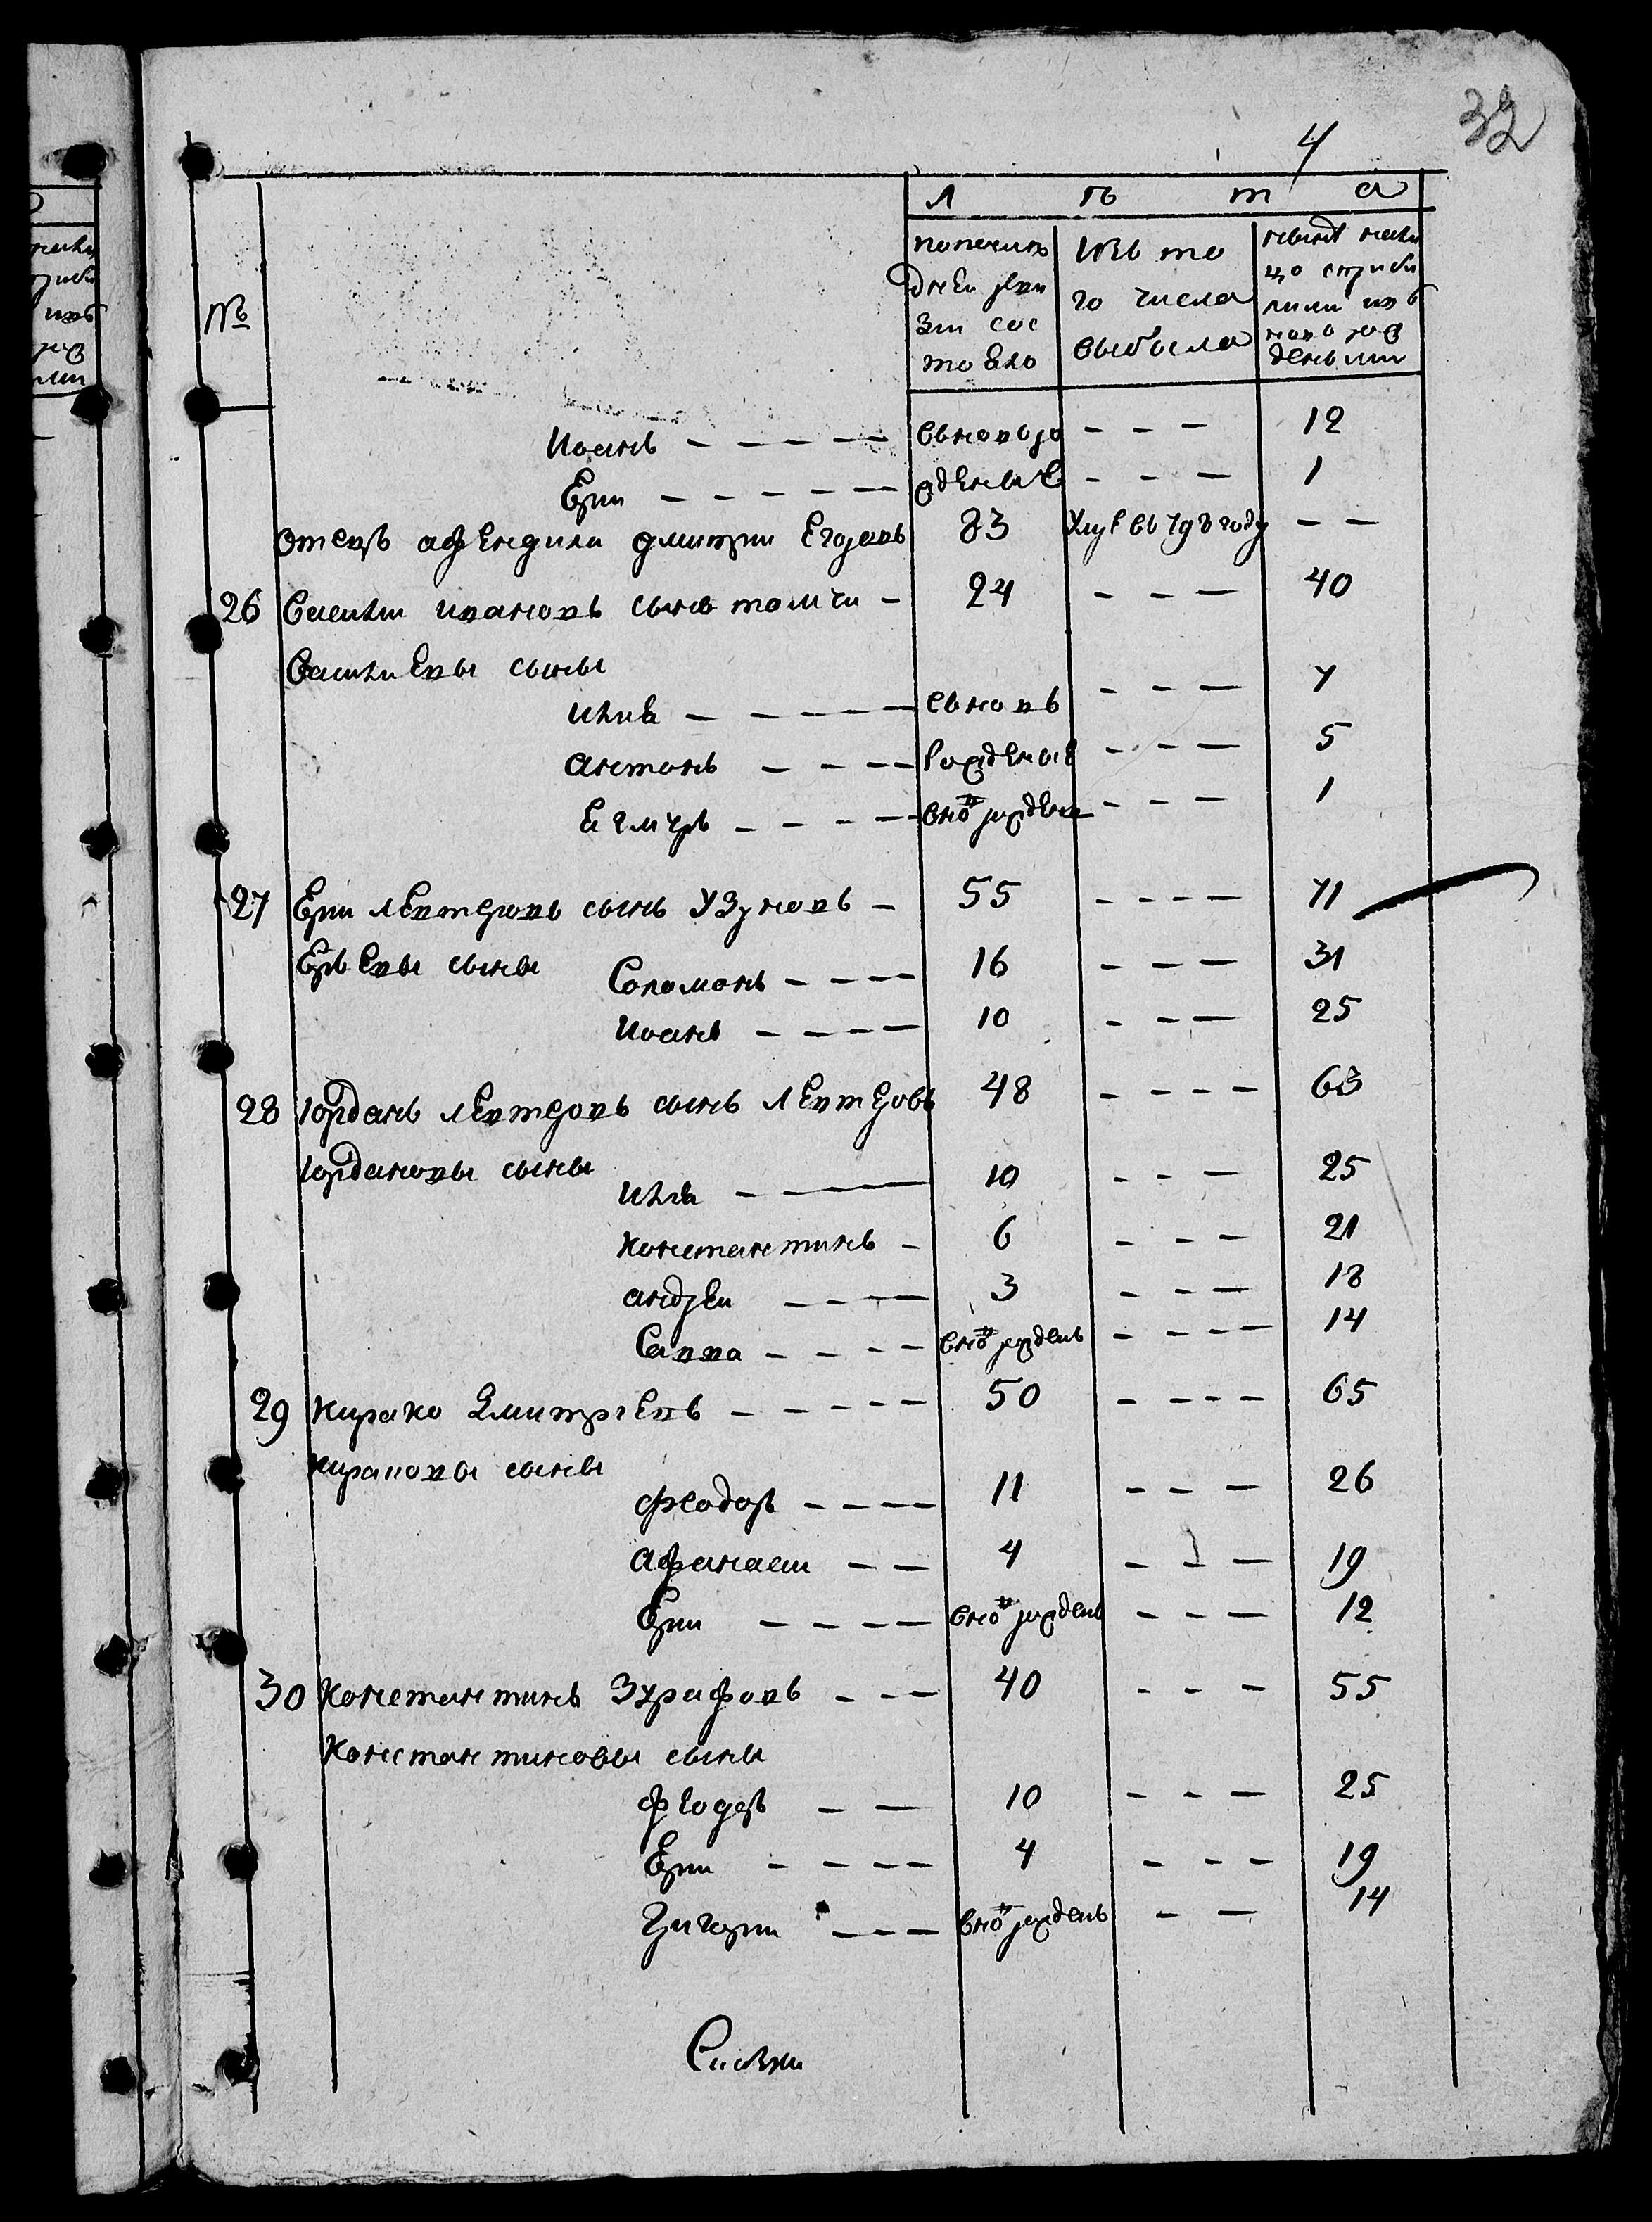 32
4
№
Л ѣ т а
по послѣ
дней реви
зіи сос
тояло
изъ то
го числа
выбыло
нынѣ нали
цо съ прибы
лыми и въ
новорож
деными
Иоанъ — — — — — вноворо — — — 12
Ери — — — — — жденые — — — 1
Отецъ афендили дмитри Егоровъ 83 Умре въ 798 году — —
26 Василии ивановъ сынъ томчи — 24 — — — 40
Василиевы сыны
илия — — — — — вновъ — — — 7
антонъ — — — — рожденые — — — 5
— — — — вно рожден — — — 1
27 Ери левтеровъ сынъ Узуновъ — 55 — — — — 71
Ерьевы сыны Соломонъ — — — — 16 — — — 31
Иоанъ — — — — 10 — — — 25
28 Іорданъ левтеровъ сынъ левтеровъ 48 — — — — 63
Іордановы сыны
илия — — — 10 — — — 25
константинъ — 6 — — — 21
андреи — — — — 3 — — — 18
Савва — — — — вно рожденъ — — — — 14
29 кирако Дмитріевъ — — — — — 50 — — — — 65
кираковы сыны
феодоръ — — — — 11 — — — 26
афанасии — — 4 — — — 19
Ери — — — — вно рожденъ — — — 12
30 константинъ Зурафовъ — — — 40 — — — 55
константиновы сыны
феодоръ — — 10 — — — 25
Ери — — — — 4 — — — 19
Григори — — — вно рожденъ — — 14